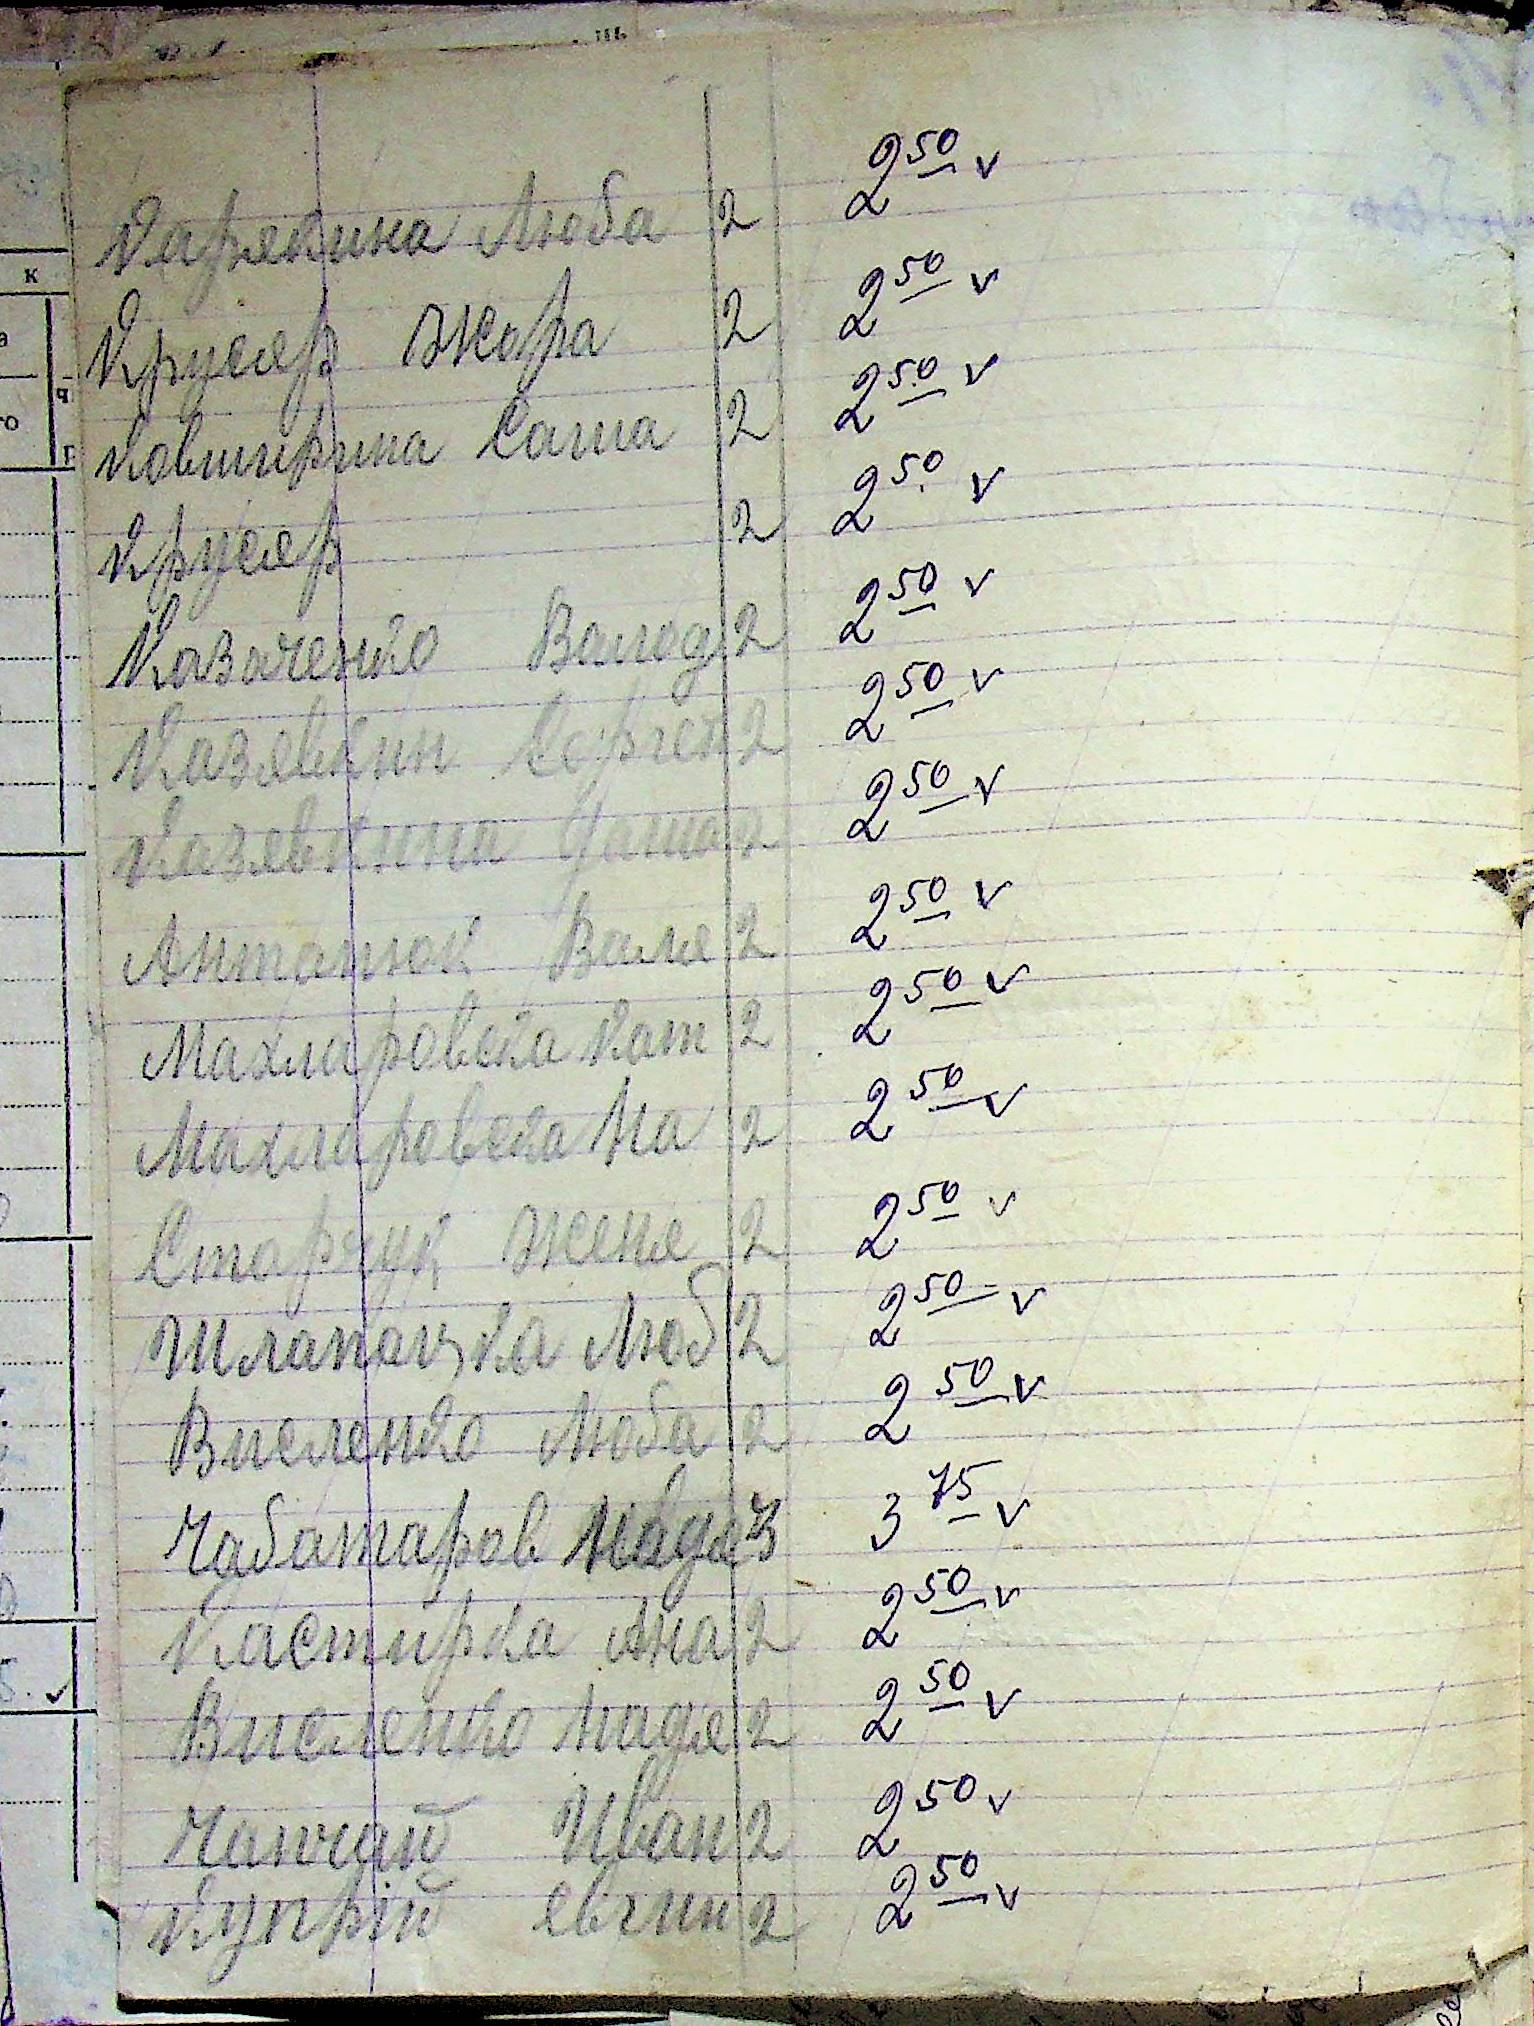 Карякина Люба 2 2 50 v
Крусяр Жора 2 2 50 v
Ковширина Саша 2 2 50 v
Крусяр 2 2 50 v
Казаченко Валод 2 2 50 v
Казявкин Сергей 2 2 50 v
Казявкина 2 2 50 v
Антонюк Валя 2 2 50 v
Махларовска Кат 2 2 50 v
Махларовска На 2 2 50 v
Старчук Женя 2 2 50 v
Шлапацка Люб 2 2 50 v
Висленко Люба 2 2 50 v
Чабатаров Надя 3 3 75 v
Кастирка Ана 2 2 50 v
Висленко Надя 2 2 50 v
Чапчай Иван 2 2 50 v
Купрій Евгин 2 2 50 v